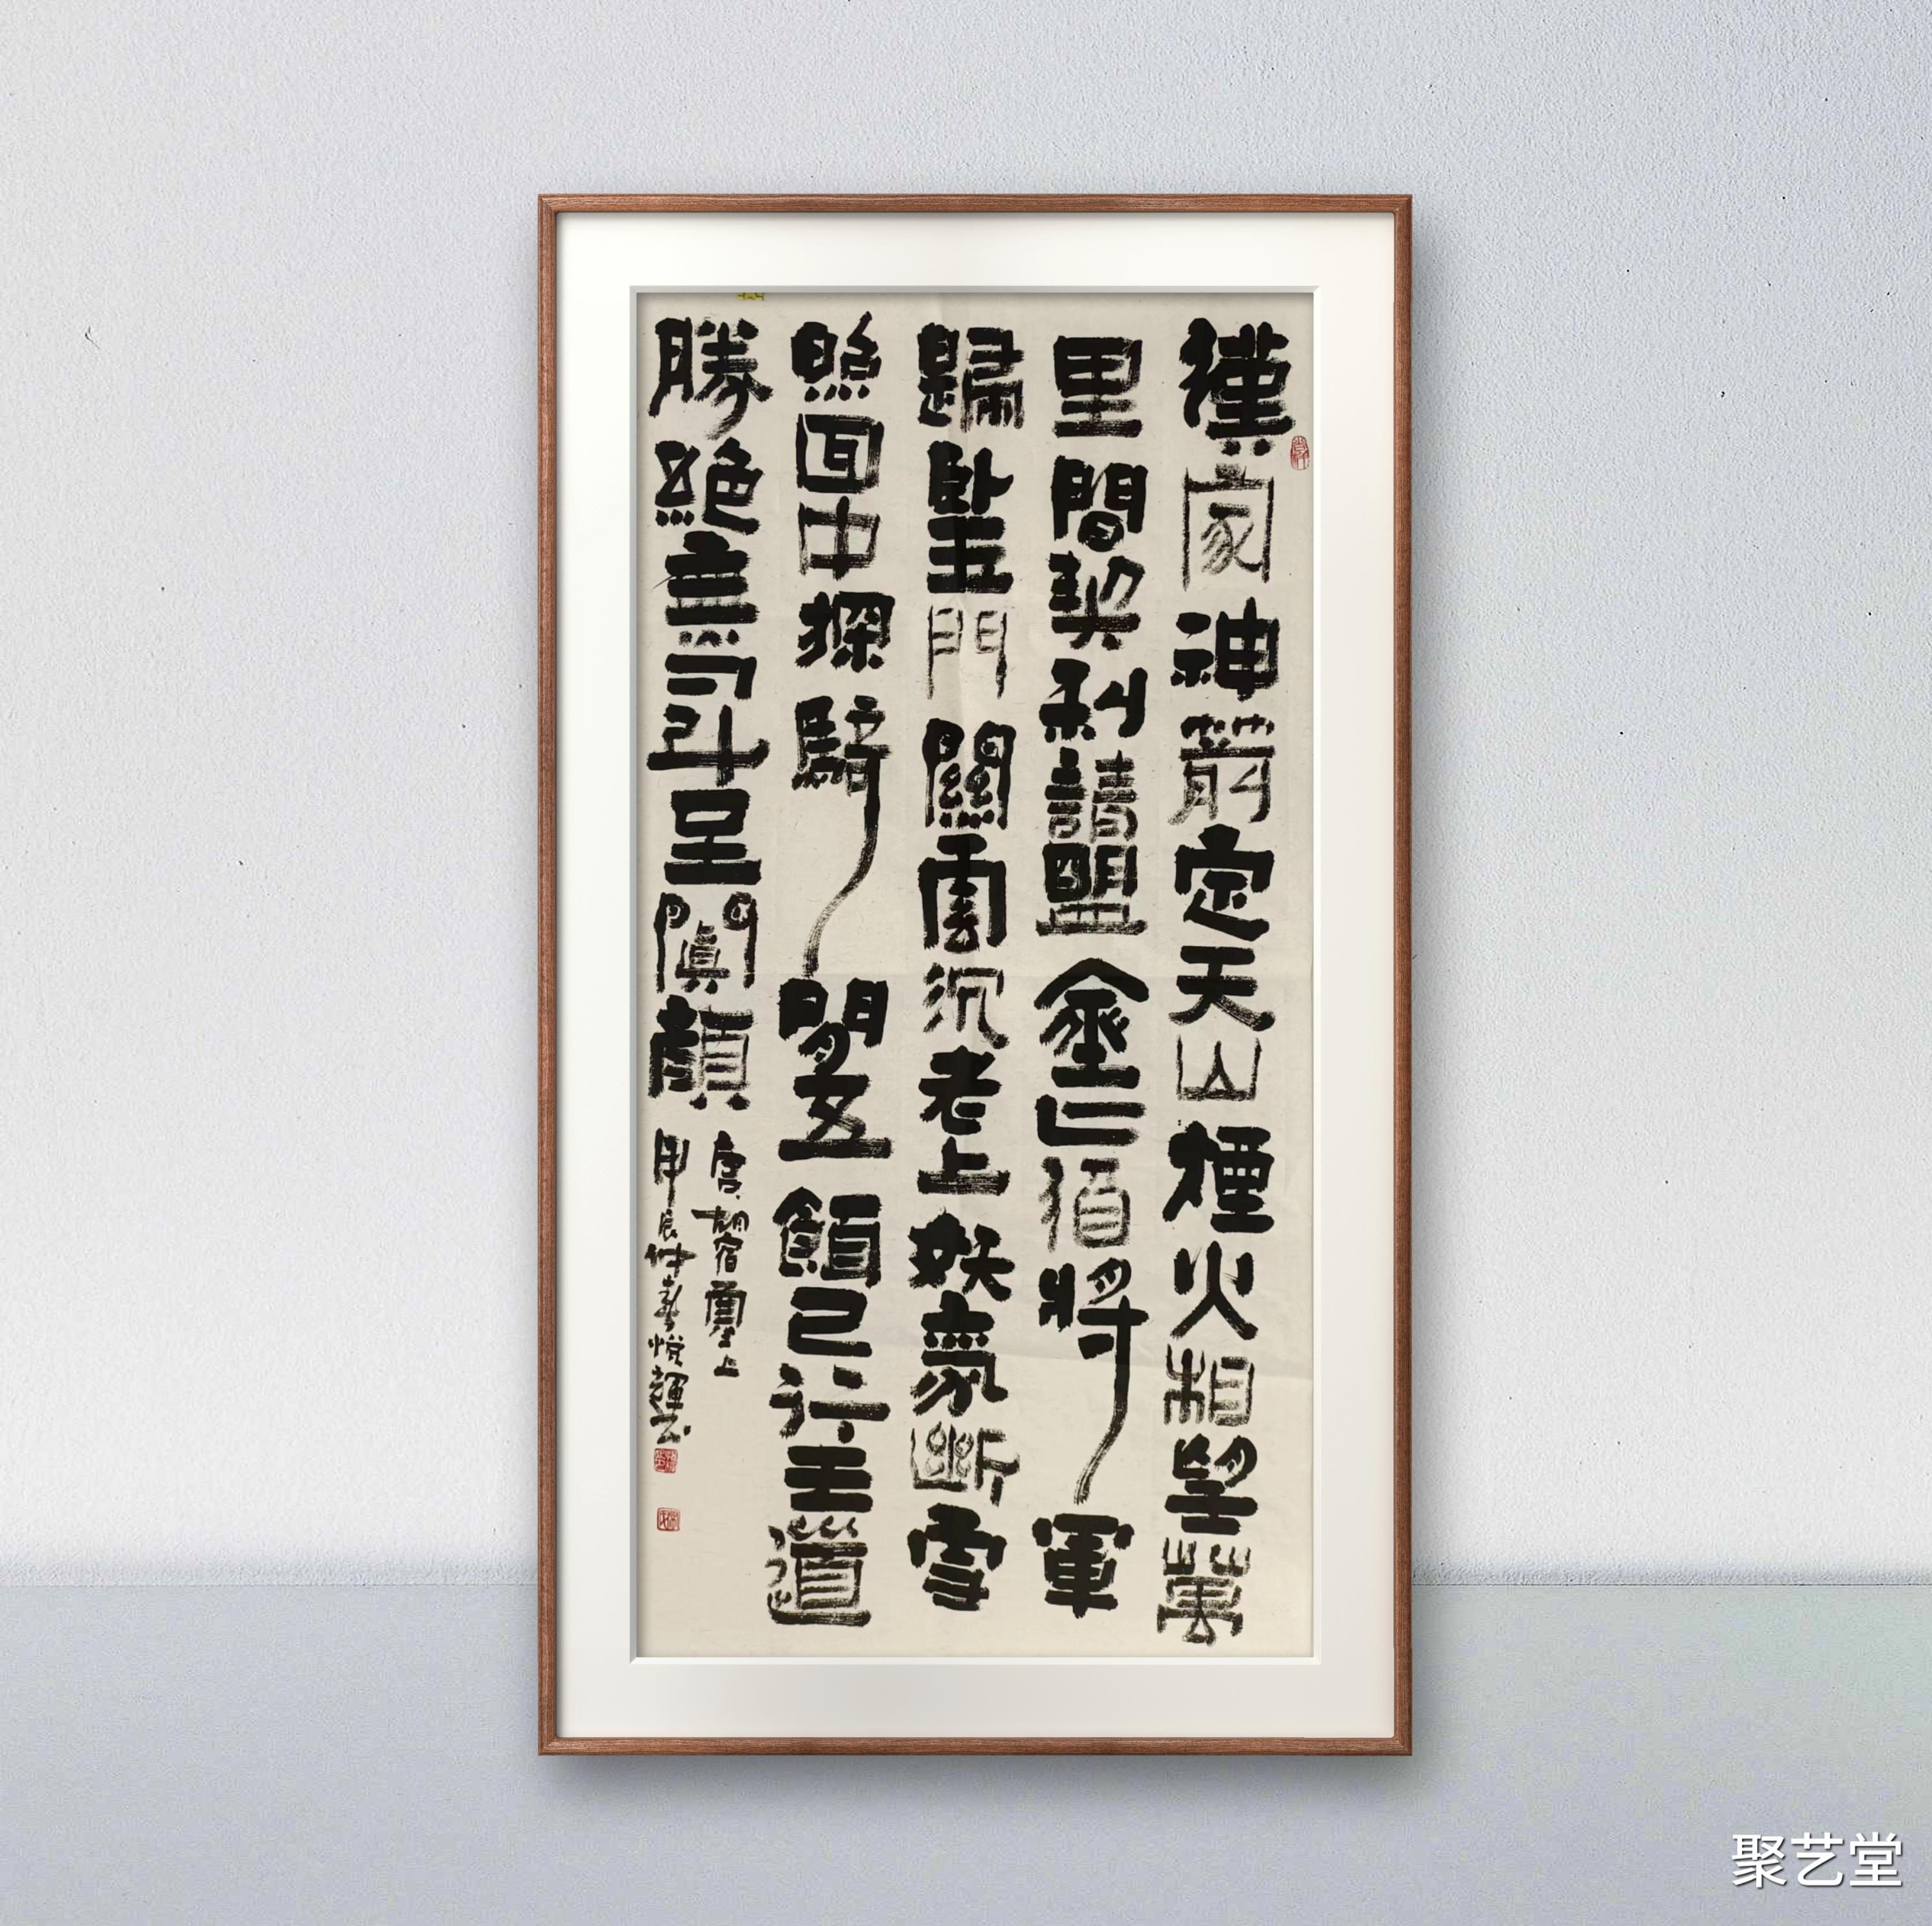 漢家神箭定天山煙火相望萬
里間契利請盟金匕酒將軍
歸臥玉門關雲沉老上妖氛斷雪
照回中探騎五餌已行王道
勝絕無刁斗至闐顏
唐胡宿塞上
甲辰仲春悅
聚艺堂